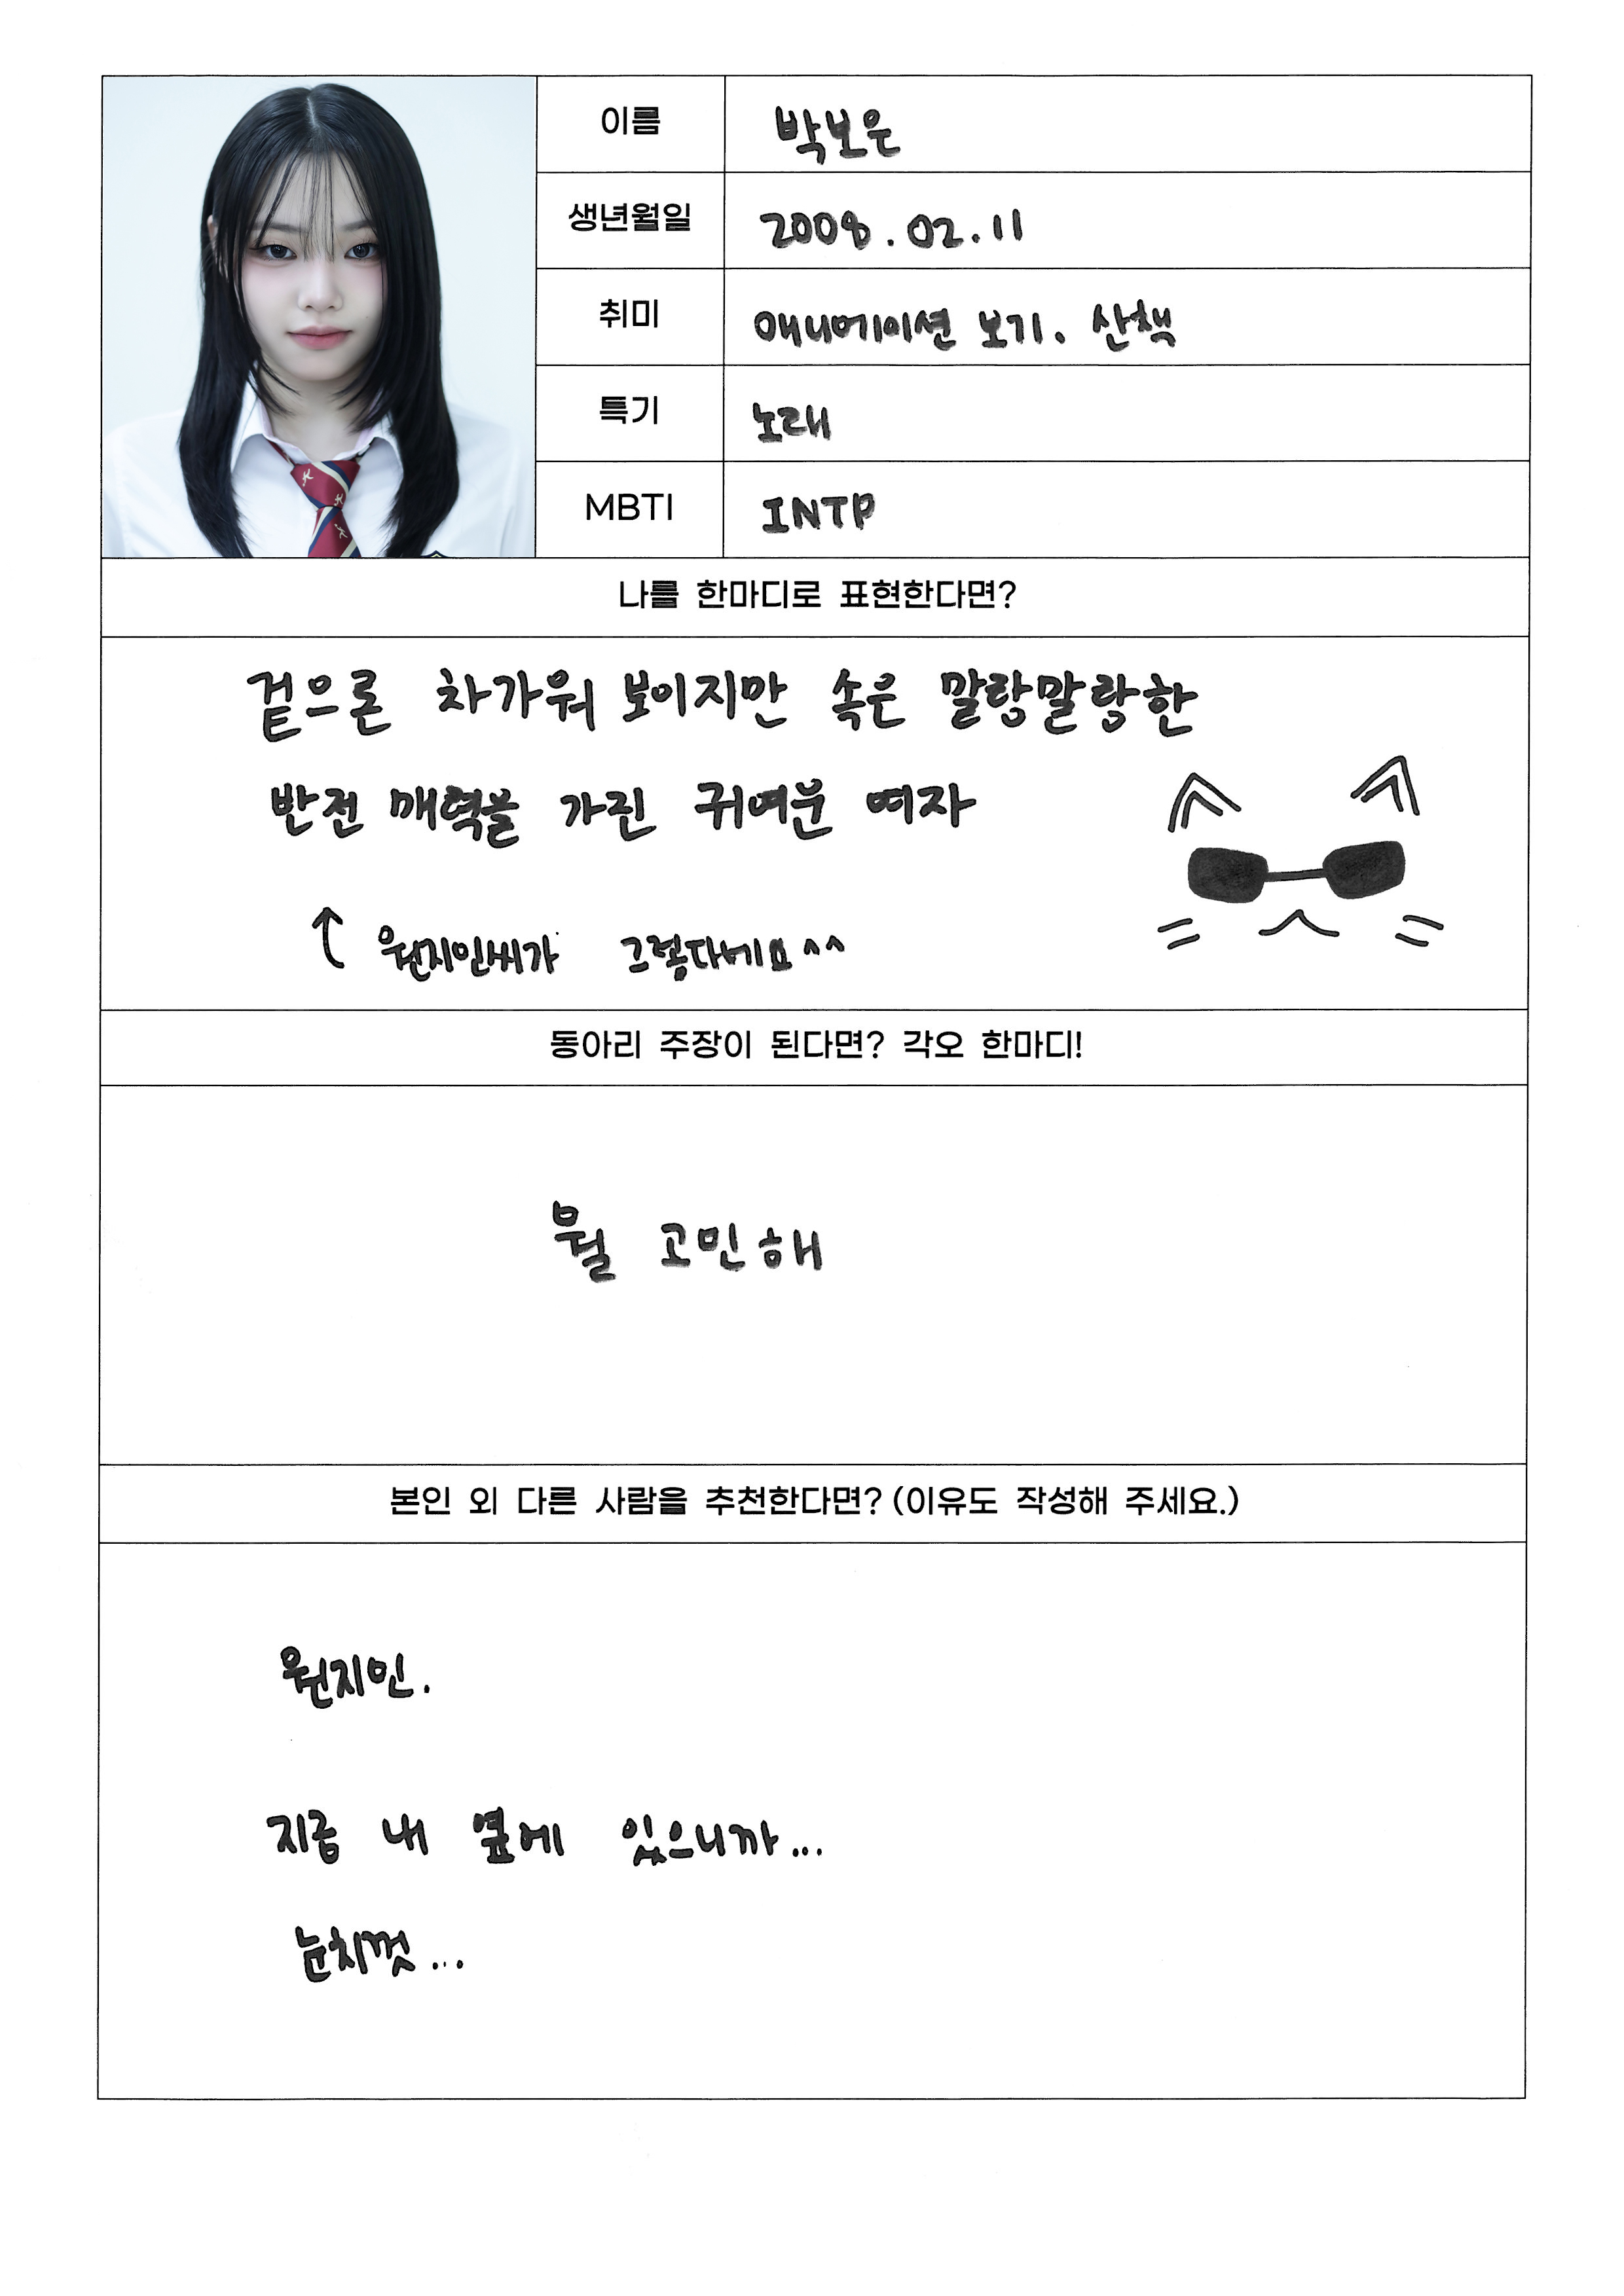 이름 박보은
생년월일 2008.02.11
취미 애니메이션 보기, 산책
특기 노래
MBTI INTP
나를 한마디로 표현한다면?
겉으론 차가워 보이지만 속은 말랑말랑한
반전 매력을 가진 귀여운 여자
↑ 원지민씨가 그렇다네요^^
동아리 주장이 된다면? 각오 한마디!
뭘 고민해
본인 외 다른 사람을 추천한다면? (이유도 작성해 주세요.)
원지민.
지금 내 옆에 있으니까...
눈치껏...